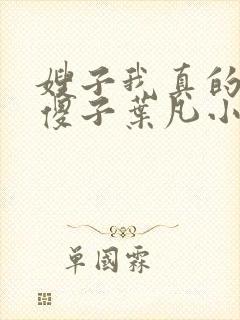 嫂子我真的
傻子葉凡小
单國霖